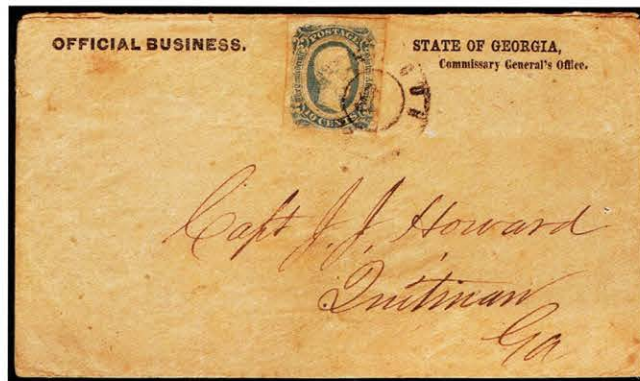 OFFICIAL BUSINESS.
POSTAGE
10 CENTS
STATE OF GEORGIA,
Commissary General's Office.
Capt J. J. Howard
Quitman
Ga